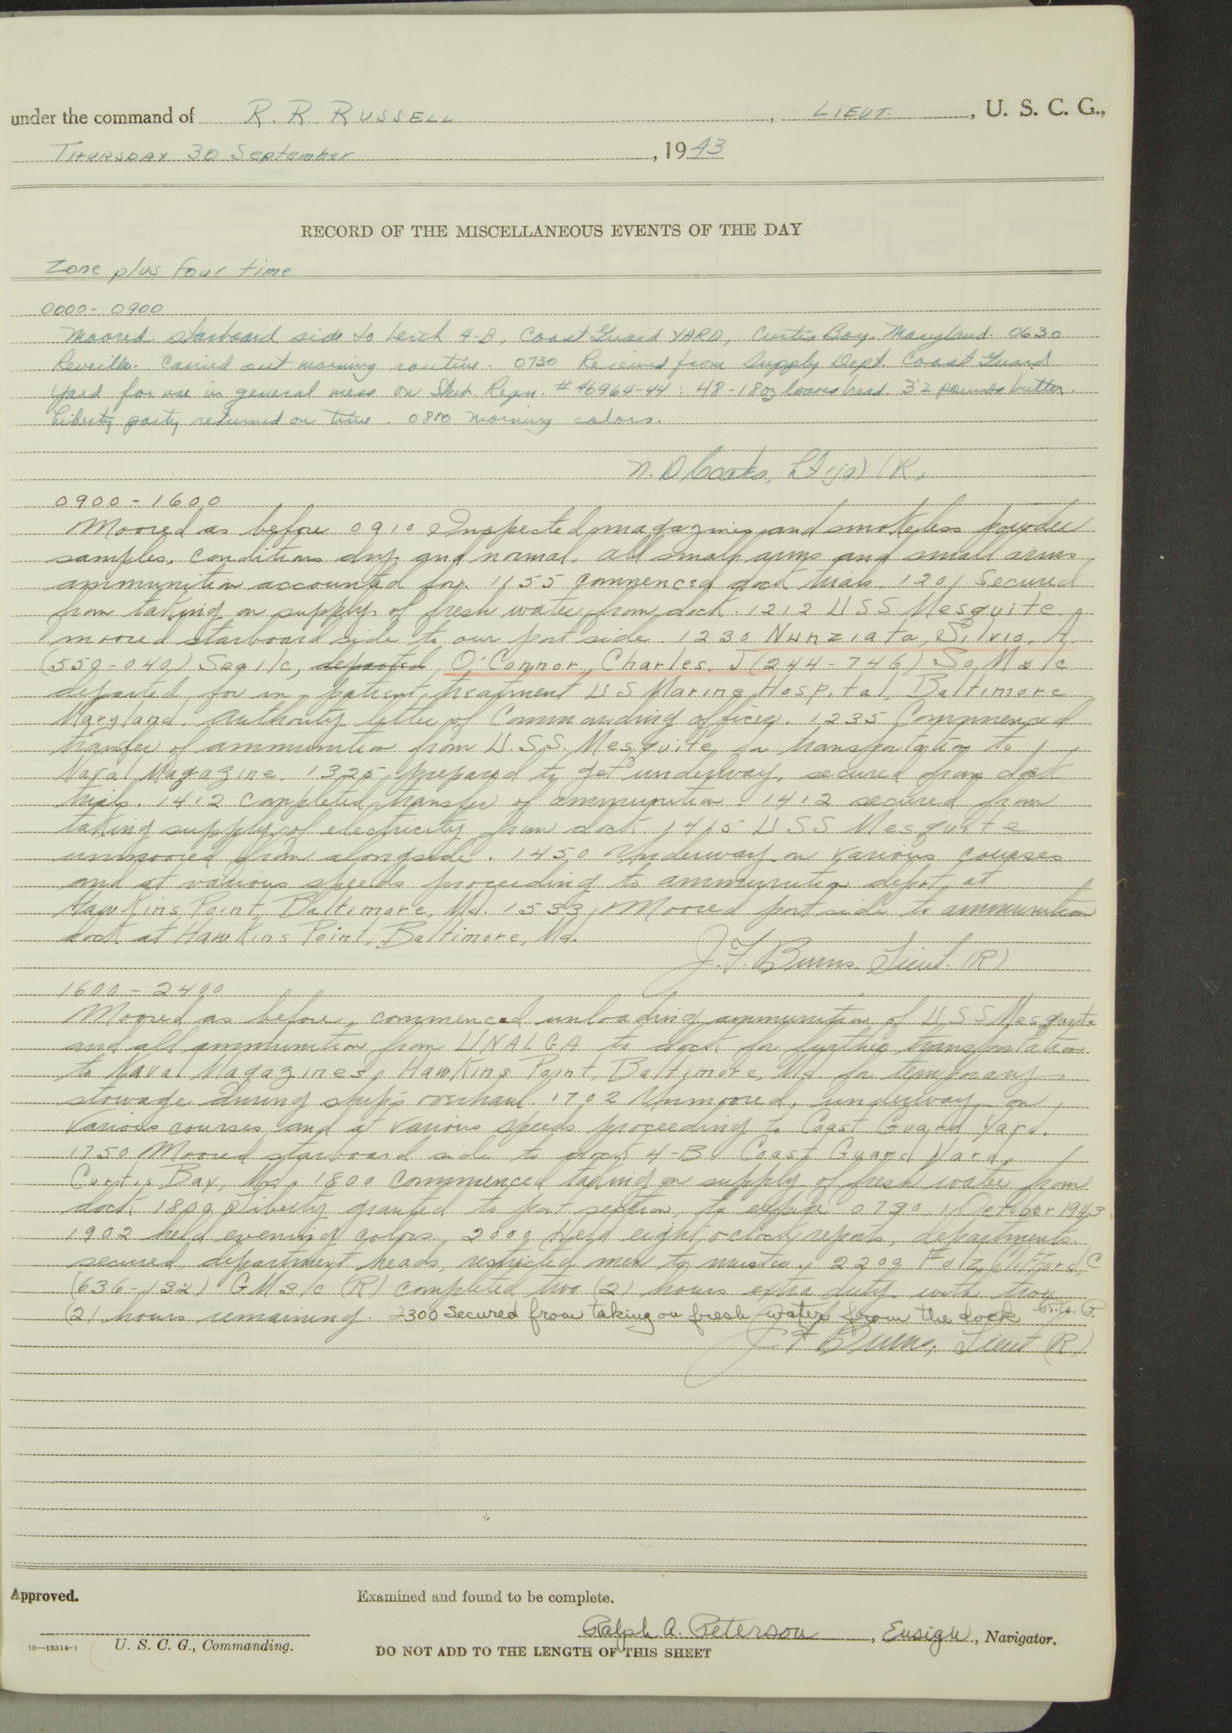 under the command of R. R. RUSSELL, LIEUT., U. S. C. G.,
THURSDAY 30 September, 1943
RECORD OF THE MISCELLANEOUS EVENTS OF THE DAY
Zone plus four time
0000-0900
Moored starboard side to berth 4-B, Coast Guard YARD, Curtis Bay, Maryland. 0630
Reveille. Carried out morning routine. 0730 Received from Supply Dept. Coast Guard
Yard for use in general mess on Stub. Reqn. # 46964-44: 48-18oz loaves bread. 32 pounds butter.
Liberty party returned on time. 0800 Morning colors.
Lt (jg) (R)
0900-1600
Moored as before 0910 Inspected magazines and smokeless powder
samples, conditions dry and normal. All small arms and small arms
ammunition accounted for. 1155 Commenced dock trials. 1201 Secured
from taking on supply of fresh water from dock. 1212 USS Mesquite
moored starboard side to our port side. 1230 Nunziata, Silvio, A
(550-040) Sea 1/c, departed O'Connor, Charles. J (244-746) So M 2/c
departed for in patient treatment US Marine Hospital, Baltimore
Maryland. Authority letter of Commanding officer. 1235 Commenced
transfer of ammunition from U.S.S. Mesquite for transportation to
Naval Magazine. 1325 prepared to get underway, secured from dock
trials. 1412 completed transfer of ammunition. 1412 secured from
taking supply of electricity from dock 1415 USS Mesquite
unmoored from alongside. 1450 Underway on various courses
and at various speeds proceeding to ammunition depot, at
Hawkins Point, Baltimore, Md. 1533 Moored port side to ammunition
dock at Hawkins Point, Baltimore, Md.
J. F. Burns. Lieut. (R)
1600-2400
Moored as before, commenced unloading ammunition of USS Mesquite
and all ammunition from UNALGA to dock for further transportation
to Naval Magazines, Hawkins Point, Baltimore, Md for temporary
stowage during ship's overhaul. 1702 Unmoored, underway on
various courses and at various speeds proceeding to Coast Guard Yard.
1750 Moored starboard side to dock 4-B Coast Guard Yard,
Curtis Bay, Md. 1800 commenced taking on supply of fresh water from
dock 1800 Liberty granted to port section, to expire 0730 1 October 1943
1902 held evening colors, 2000 Held eight o'clock reports, departments
secured, department heads, restricted men to muster. 2200 Foltz, Clifford C
(636-132) GM3/c (R) completed two (2) hours extra duty with two
(2) hours remaining. 2300 Secured from taking on fresh water from the dock
J F Burns, Lieut (R)
Approved.
Examined and found to be complete.
Ralph A. Peterson, Ensign, Navigator.
16—13314-1 U. S. C. G., Commanding.
DO NOT ADD TO THE LENGTH OF THIS SHEET